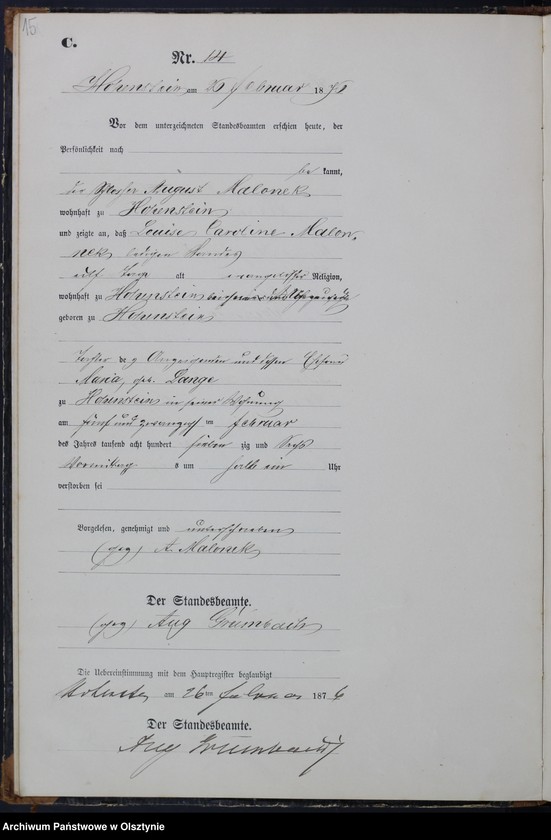 15
C.
Nr. 14
Hohenstein am 26 februar 1876
Vor dem unterzeichneten Standesbeamten erschien heute, der
Persönlichkeit nach
be kannt,
der Schlosser August Malonek
wohnhaft zu Hohenstein
und zeigte an, daß Louise Caroline Malon-
nek ledigen Standes
elf Tage alt evangelischer Religion,
wohnhaft zu Hohenstein
geboren zu Hohenstein
Tochter des Angezeigenden und dessen Ehefrau
Maria, geb. Lange
zu Hohenstein in seiner Wohnung
am fünf und zwanzigsten februar
des Jahres tausend acht hundert sieben zig und sechs
Vormittags um halb ein Uhr
verstorben sei
Vorgelesen, genehmigt und unterschrieben
(gez) A. Malonek
Der Standesbeamte.
(gez) Aug Grumbach
Die Uebereinstimmung mit dem Hauptregister beglaubigt
am 26ten Februar 1876
Der Standesbeamte.
Aug Grumbach
Archiwum Państwowe w Olsztynie